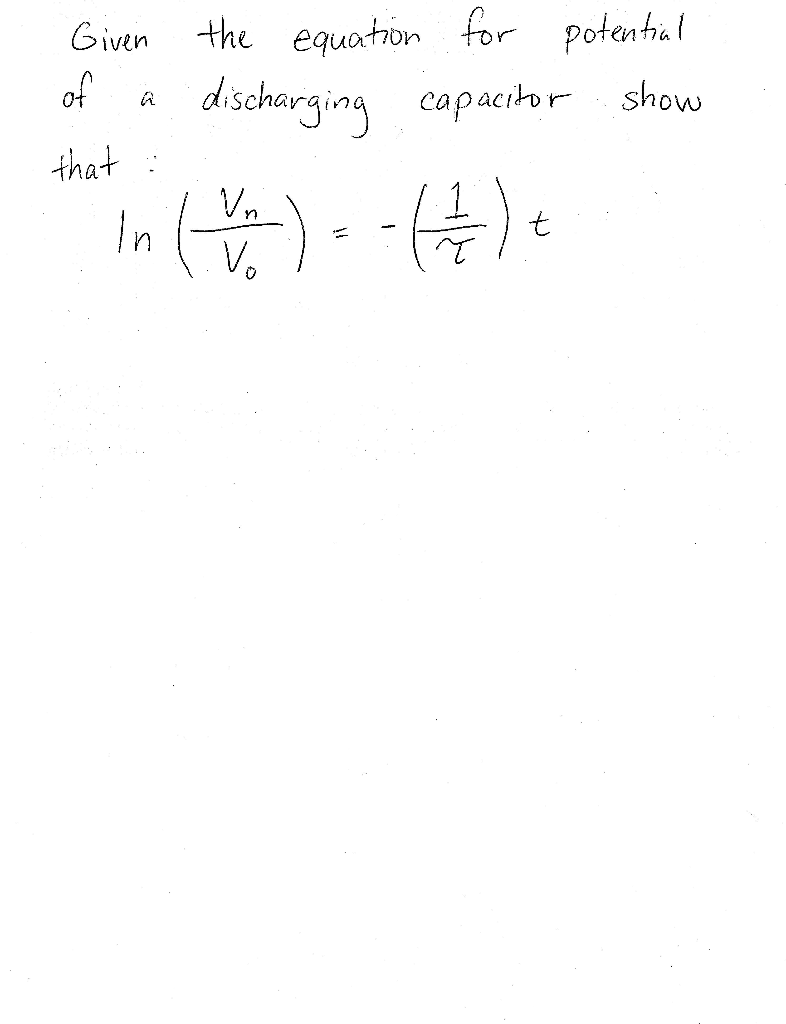 Given the equation for potential
of a discharging capacitor show
that :
ln (Vn/V0) = -(1/τ) t